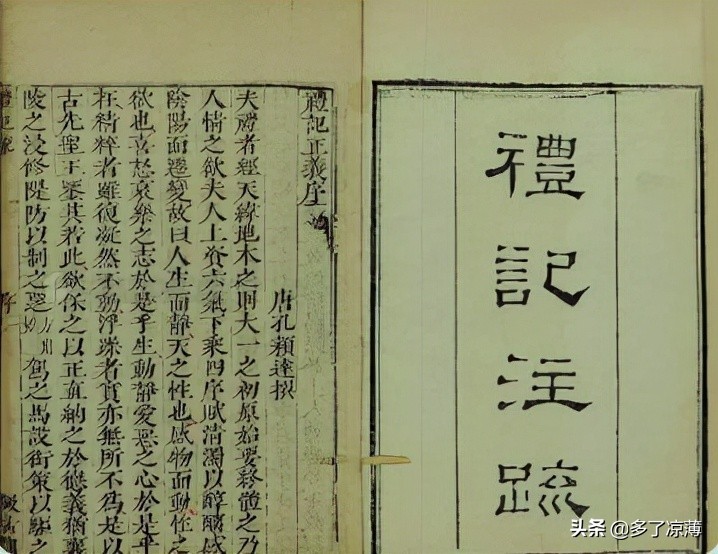 禮記注疏
禮記正義序
唐孔穎達撰
夫禮者經天緯地本之則大一之初原始要終體之乃
人情之欲夫人上資六氣下乘四序賦清濁以醇醨感
陰陽而遷變故曰人生而靜天之性也感物而動性之
欲也喜怒哀樂之志於是乎生動靜愛惡之心於是乎
在精粹者雖復凝然不動浮躁者實亦無所不爲是以
古先聖王鑒其若此欲保之以正直納之於德義猶襄
陵之浸修隄防以制之駕之馬設銜策以驅之
头条 @多了凉薄